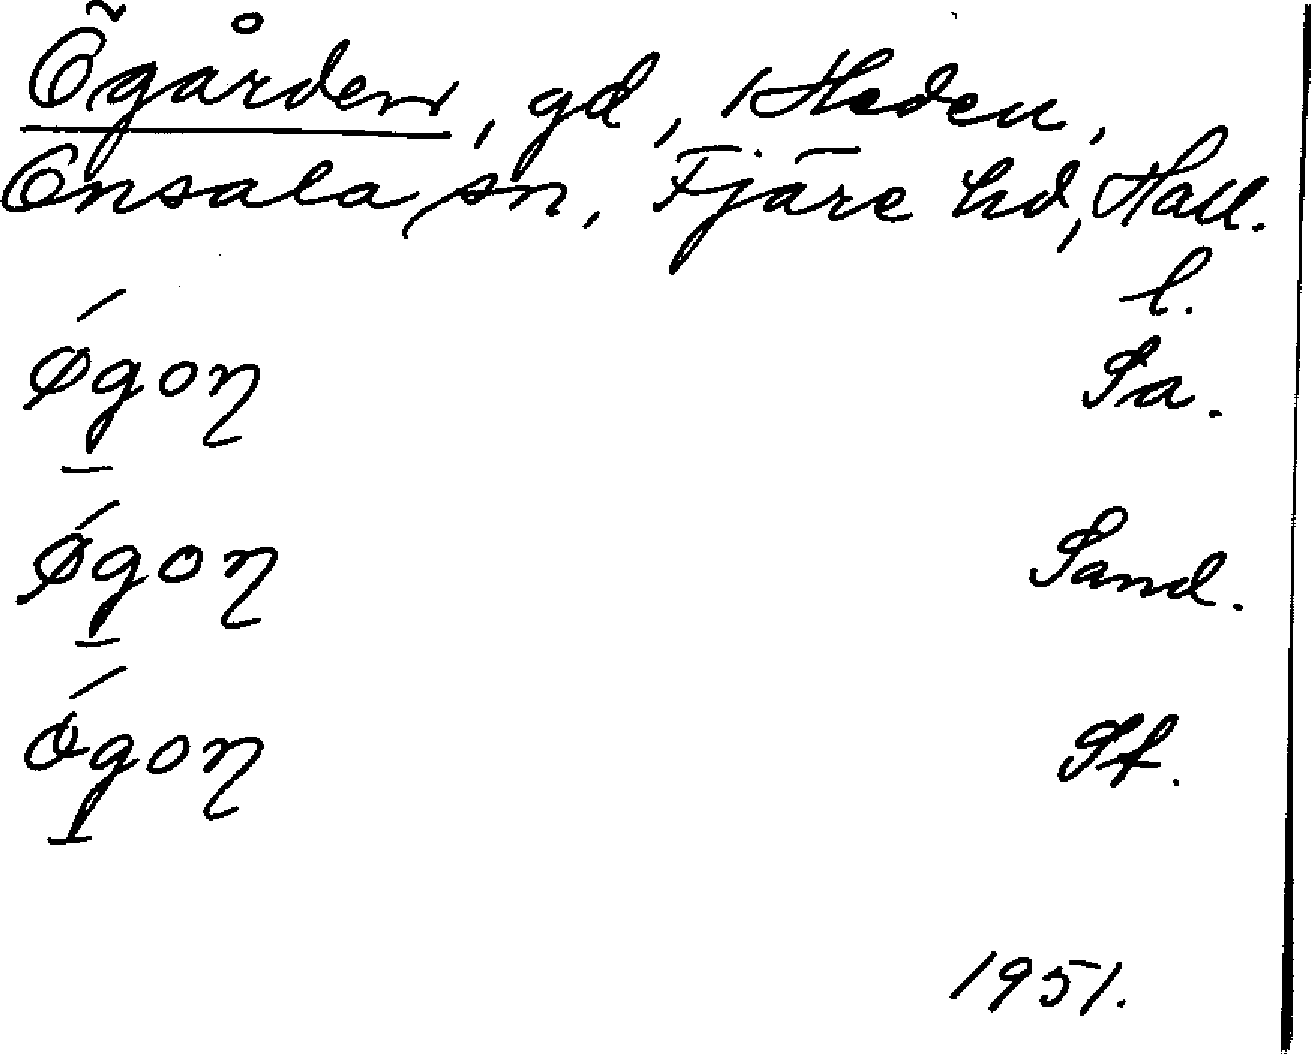 Ögården, gd, 1 Heden,
Onsala sn, Fjäre hd, Hall.
l.
ǿgoɳ Sa.
ǿgoɳ Sand.
ógoɳ Sf.
1951.